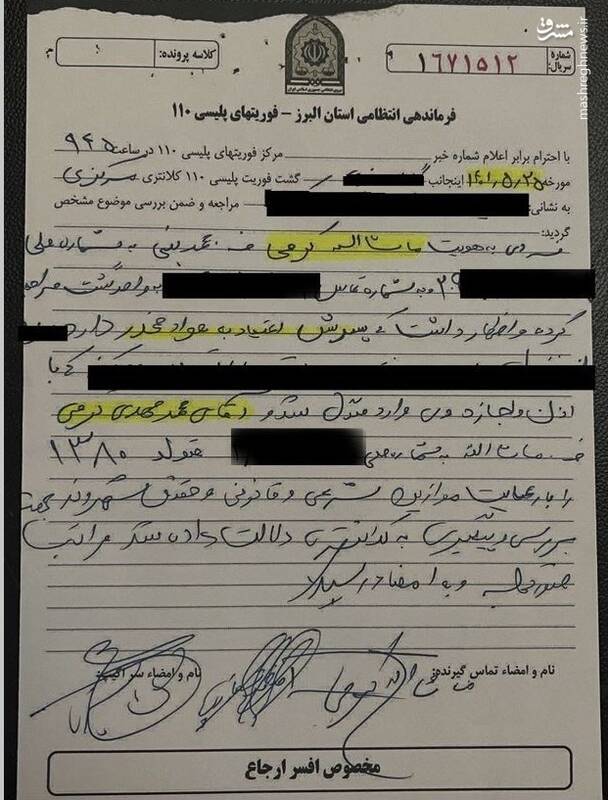 شماره سریال: ۱۶۷۱۵۱۲
کلاسه پرونده:
مشرق
mashreghnews.ir
فرماندهی انتظامی استان البرز – فوریتهای پلیسی ۱۱۰
با احترام برابر اعلام شماره خبر مرکز فوریتهای پلیسی ۱۱۰ در ساعت ۹۴۵
مورخه ۱۴۰۱،۵،۲۵ اینجانب گشت فوریت پلیسی ۱۱۰ کلانتری مرکزی
به نشانی: مراجعه و ضمن بررسی موضوع مشخص
گردید:
فردی به هویت ماشاالله کرمی ف محمدنبی به شماره ملی
و به شماره تماس به واحد گشت مراجعه
کرده و اظهار داشت که پسرش اعتیاد به مواد مخدر دارد
که با
اذن و اجازه وی وارد منزل شد و آقای محمدمهدی کرمی
ف ماشاالله به شماره ملی متولد ۱۳۸۰
را با رعایت موازین شرعی و قانونی و حقوق شهروند جهت
بررسی و پیگیری به کلانتری دلالت داده شد مراتب
صورتجلسه و به امضا رسید
نام و امضاء تماس گیرنده:
نام و امضاء سر اکیپ:
ماشاالله کرمی
مخصوص افسر ارجاع